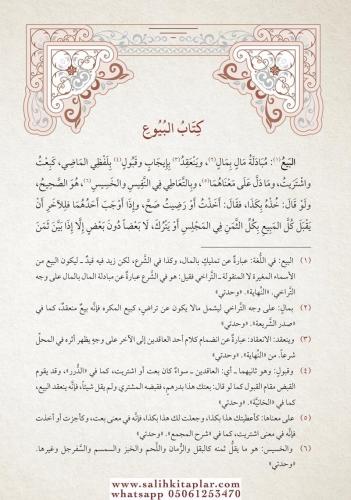 كِتَابُ البُيُوع
البَيْعُ(١): مُبَادَلَةُ مَالٍ بِمَالٍ(٢)، وَيَنْعَقِدُ(٣) بِإِيجَابٍ وَقَبُولٍ(٤) بِلَفْظَيِ المَاضِي، كَبِعْتُ
وَاشْتَرَيْتُ، وَمَا دَلَّ عَلَى مَعْنَاهُمَا(٥)، وَبِالتَّعَاطِي فِي النَّفِيسِ وَالخَسِيسِ(٦)، هُوَ الصَّحِيحُ،
وَلَوْ قَالَ: خُذْهُ بِكَذَا، فَقَالَ: أَخَذْتُ أَوْ رَضِيتُ صَحَّ، وَإِذَا أَوْجَبَ أَحَدُهُمَا فَلِلآخَرِ أَنْ
يَقْبَلَ كُلَّ المَبِيعِ بِكُلِّ الثَّمَنِ فِي المَجْلِسِ أَوْ يَتْرُكَ، لَا بَعْضاً دُونَ بَعْضٍ إِلَّا إِذَا بَيَّنَ ثَمَنَ
(١) البيع: في اللُّغة: عبارةٌ عن تمليكٍ بالمال، وكذا في الشَّرع، لكن زيد فيه قيدٌ ـ ليكون البيع من
الأسماء المغيرة لا المنقولة ـ التراخي فقيل: هو في الشَّرع عبارةٌ عن مبادلة المال بالمال على وجه
التَّراخي. «النِّهاية». «وحدتي»
(٢) بمالٍ: على وجه التَّراخي ليشمل مالا يكون عن تراضٍ، كبيع المكره فإنَّه بيعٌ منعقدٌ، كما في
«صدر الشَّريعة». «وحدتي»
(٣) وينعقد: الانعقاد: عبارةٌ عن انضمام كلام أحد العاقدين إلى الآخر على وجهٍ يظهر أثره في المحلِّ
شرعاً. من «النِّهاية». «وحدتي»
(٤) وقبولٍ: وهو ثانيهما ـ أي: العاقدين ـ سواءٌ كان بعت أو اشتريت، كما في «الدُّرر»، وقد يقوم
القبض مقام القبول كما لو قال: بعتك هذا بدرهمٍ، فقبضه المشتري ولم يقل شيئاً، فإنَّه ينعقد البيع،
كما في «الخانيَّة». «وحدتي»
(٥) على معناها: كأعطيتك هذا بكذا، وجعلت لك هذا بكذا، فإنَّه في معنى بعت، وكأجزت أو أخذت
فإنَّه في معنى اشتريت، كما في «شرح المجمع». «وحدتي»
(٦) والخسيس: هو ما يقلُّ ثمنه كالبقل والرُّمان واللَّحم والخبز والسمسم والسَّفرجل وغيرها.
«النِّهاية». «وحدتي»
www.salihkitaplar.com
whatsapp 05061253470